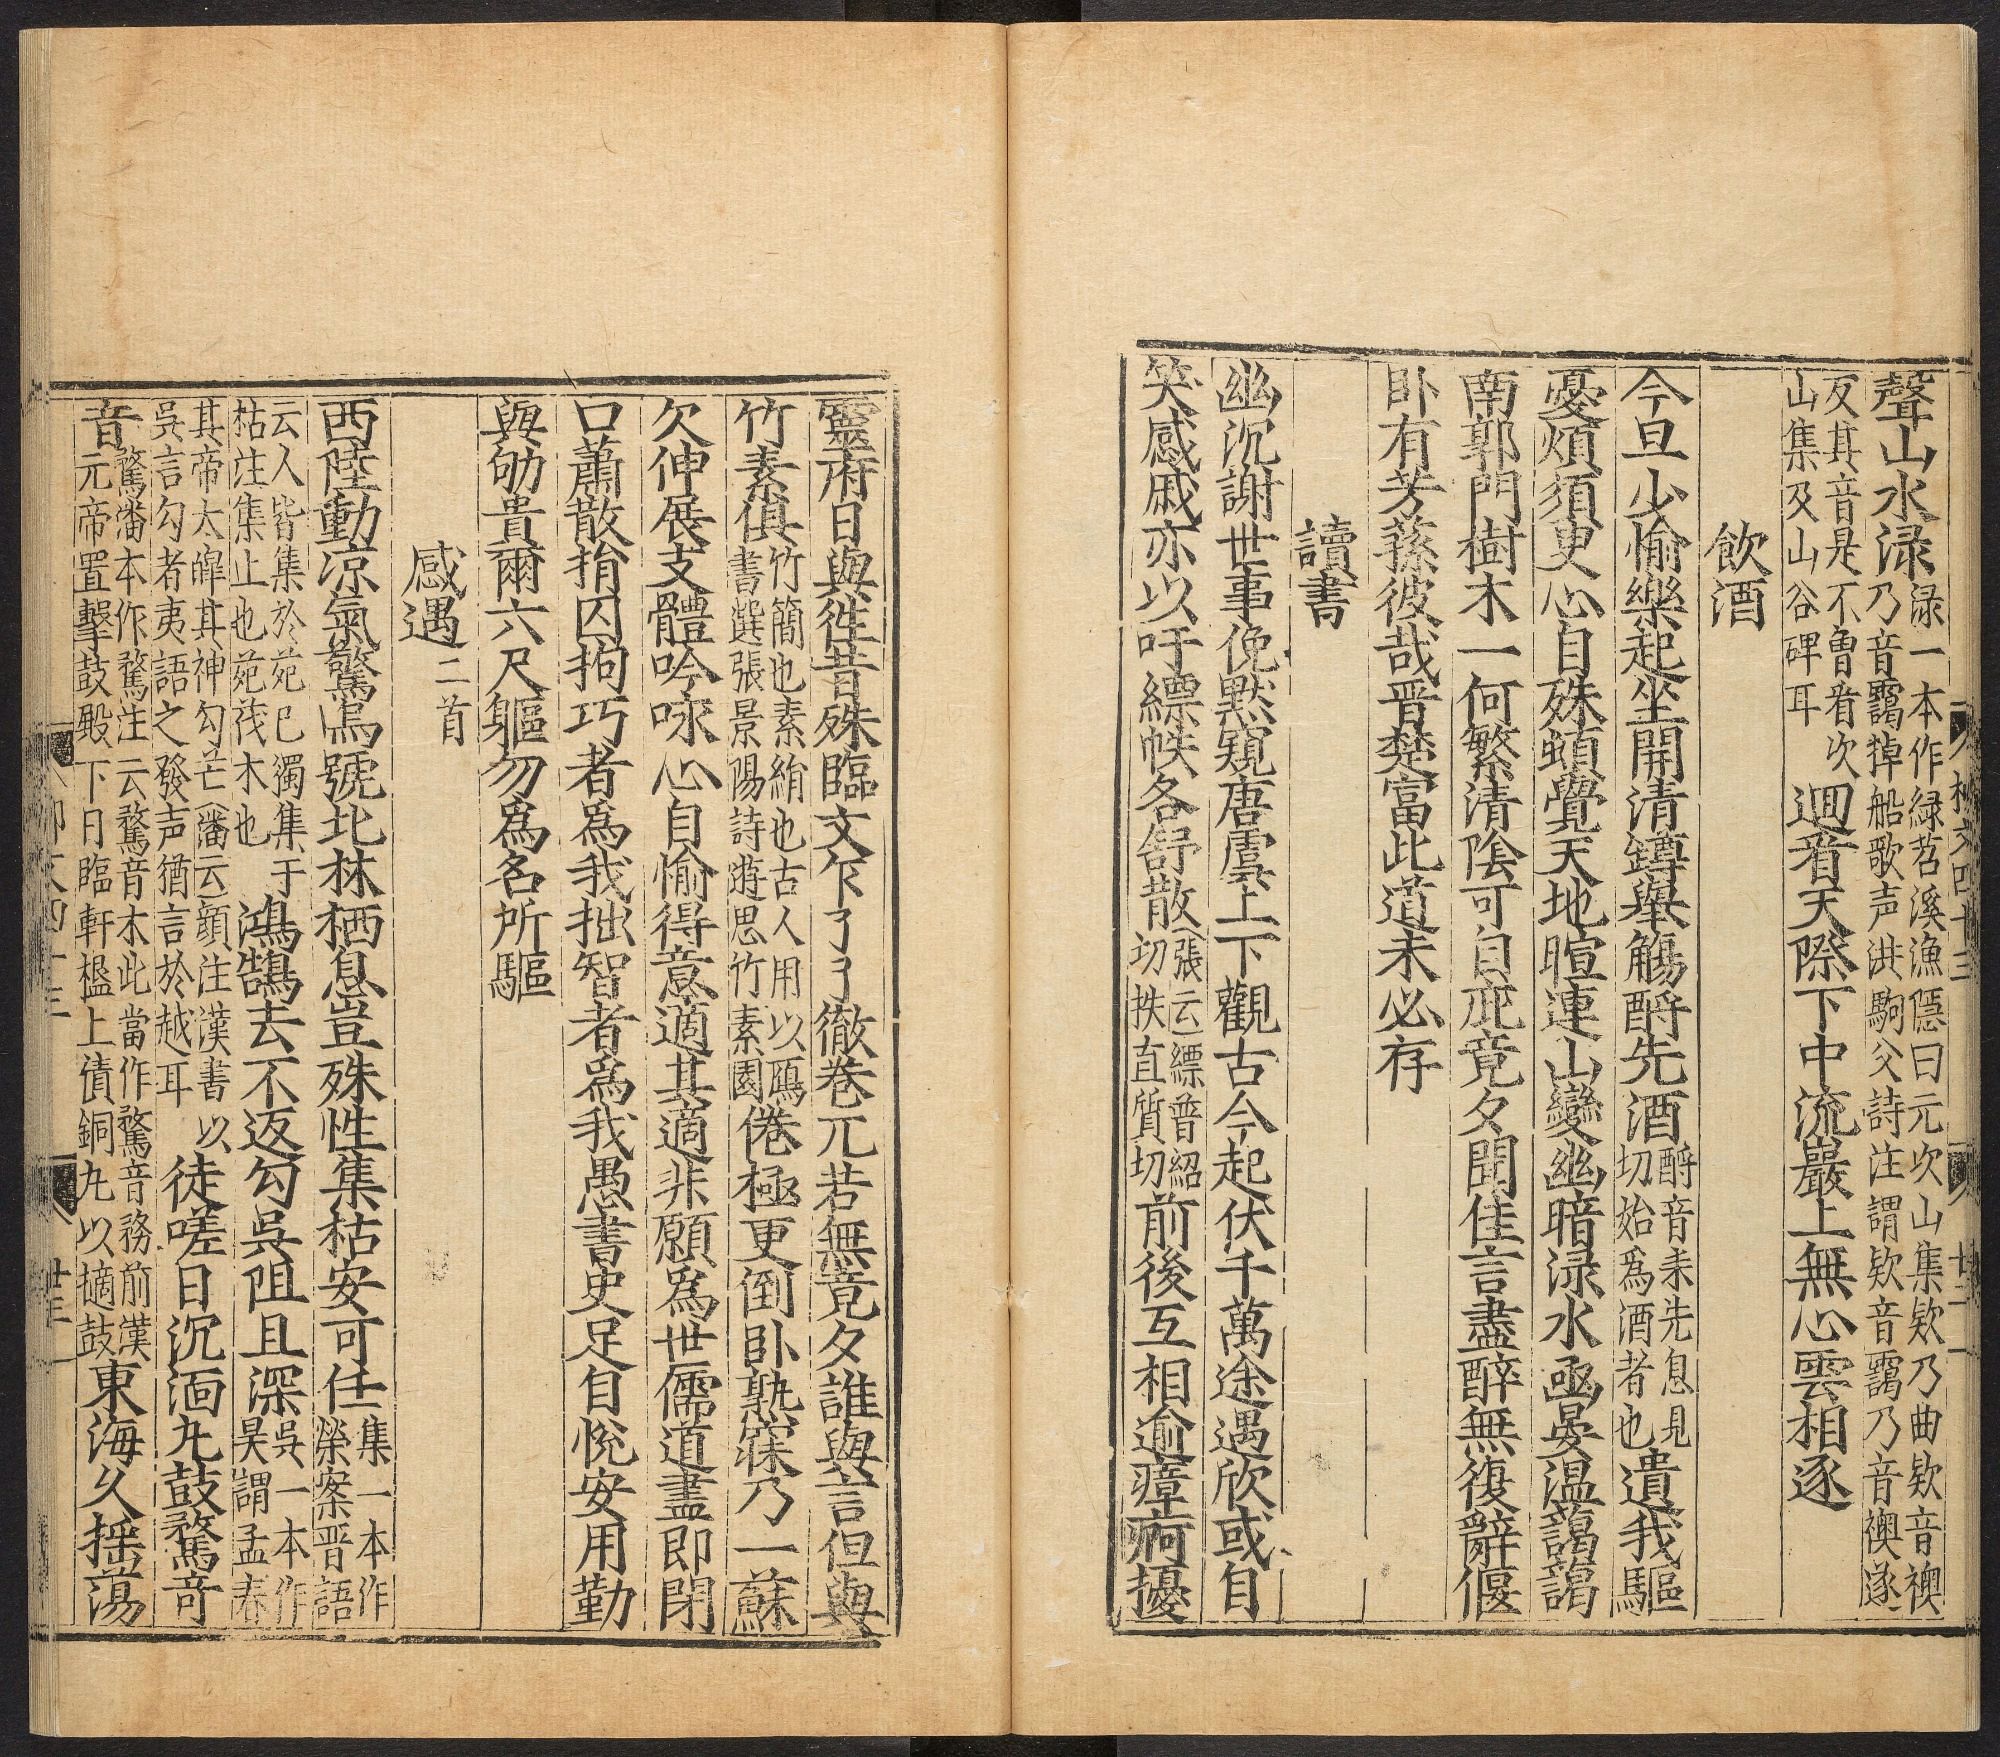 聲山水渌渌一本作緑苕溪漁隠曰元次山集欵乃曲欵音襖
乃音靄棹船歌声洪駒父詩注謂欵音靄乃音襖遂
反其音是不曽看次
山集及山谷碑耳迴看天際下中流巖上無心雲相逐
飲酒
今旦少愉樂起坐開清罇舉觴酹先酒酹音耒先息見
切始爲酒者也遺我驅
憂煩須㪅心自殊頓覺天地暄連山變幽暗渌水函晏温藹藹
南郭門樹木一何繁清隂可自庇竟夕聞佳言盡醉無復辭偃
卧有芳蓀彼哉晋楚富此道未必存
讀書
幽沉謝世事俛黙窺唐虞上下觀古今起伏千萬途遇欣或自
笑感戚亦以吁縹帙各舒散張云縹普紹
切抶直質切前後互相逾瘴痾擾
靈府日與徃昔殊臨文乍了了徹卷兀若無竟夕誰與言但與
竹素俱竹簡也素絹也古人用以
書選張景陽詩遊思竹素園倦極更倒卧熟寐乃一蘇
欠伸展支體吟咏心自愉得意適其適非願爲世儒道盡即閉
口蕭散捐囚拘巧者爲我拙智者爲我愚書史足自悦安用勤
與劬貴爾六尺軀勿爲名所驅
感遇二首
西陸動凉氣驚烏號北林栖息豈殊性集枯安可任集一本作
榮案晋語
云人皆集於苑已獨集于
枯注集止也苑茂木也鴻鵠去不返勾吳阻且深吳一本作
昊謂孟春
其帝太皡其神勾芒潘云顔注漢書以
吳言勾者夷語之發声猶言於越耳徒嗟日沉湎丸鼓騖奇
音騖潘本作鶩注云鶩音木此當作騖音務前漢
元帝置鼙鼓殿下日臨軒檻上隤銅丸以擿鼓東海久摇蕩